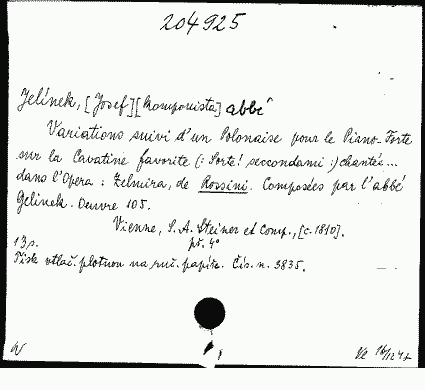 204925
Jelínek, [Josef] [komponista] abbé
Variations suivi d'un Polonaise pour le Piano-Forte
sur la Cavatine favorite (: Sorte! seccondami :) chantée...
dans l'Opera : Zelmira, de Rossini. Composées par l'abbé
Gelinek. Oeuvre 105.
Vienne, S. A. Steiner et Comp., [c. 1810].
13 s. př. 4°
Tisk vtlač. plotnou na ruč. papíře. Čís. n. 3835.